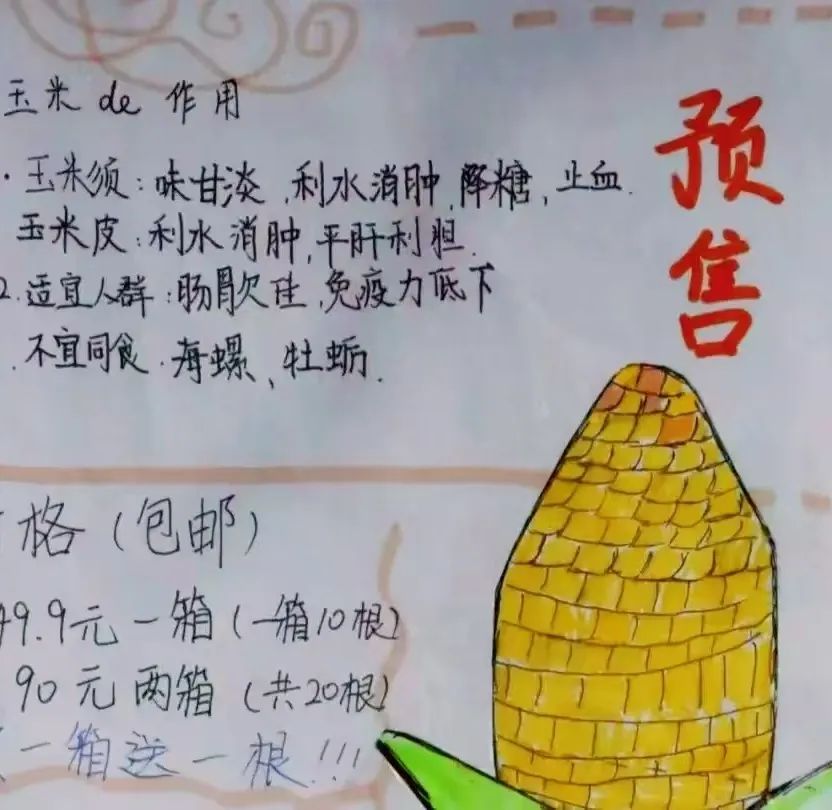 玉米 de 作用
·玉米须:味甘淡,利水消肿,降糖,止血.
玉米皮:利水消肿,平肝利胆.
2.适宜人群:肠胃欠佳,免疫力低下
.不宜同食.海螺、牡蛎.
预售
格(包邮)
49.9元一箱(一箱10根)
90元两箱(共20根)
一箱送一根!!!